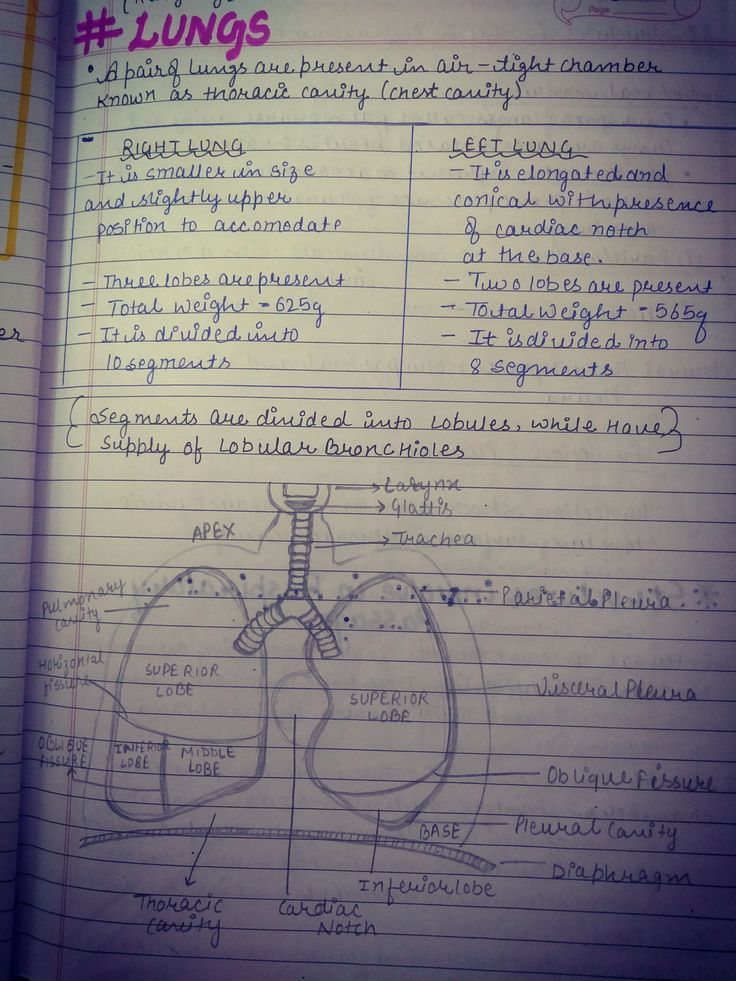 Page
# LUNGS
• A pair of lungs are present in air-tight chamber
known as thoracic cavity (chest cavity)
RIGHT LUNG
- It is smaller in size
and slightly upper
position to accomodate
- Three lobes are present
- Total weight = 625g
- It is divided into
10 segments
LEFT LUNG
- It is elongated and
conical with presence
of cardiac notch
at the base.
- Two lobes are present
- Total weight = 565g
- It is divided into
8 segments
{Segments are divided into lobules, while have}
supply of lobular Bronchioles
Larynx
Glattis
APEX
Trachea
Pulmonary
cavity
Parietal Pleura
Horizontal
fissure
SUPERIOR
LOBE
SUPERIOR
LOBE
Visceral Pleura
OBLIQUE
FISSURE
INFERIOR
LOBE
MIDDLE
LOBE
Oblique Fissure
BASE
Pleural Cavity
Diaphragm
Inferior lobe
Thoracic
Cavity
Cardiac
Notch
er